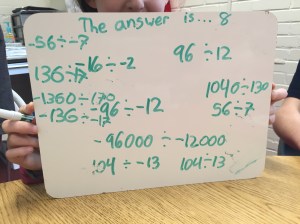 The answer is... 8
-56÷-7
-16÷-2
96÷12
136÷17
1040÷130
-1360÷-170
-96÷-12
56÷7
-136÷-17
-96000÷-12000
-104÷-13
104÷13